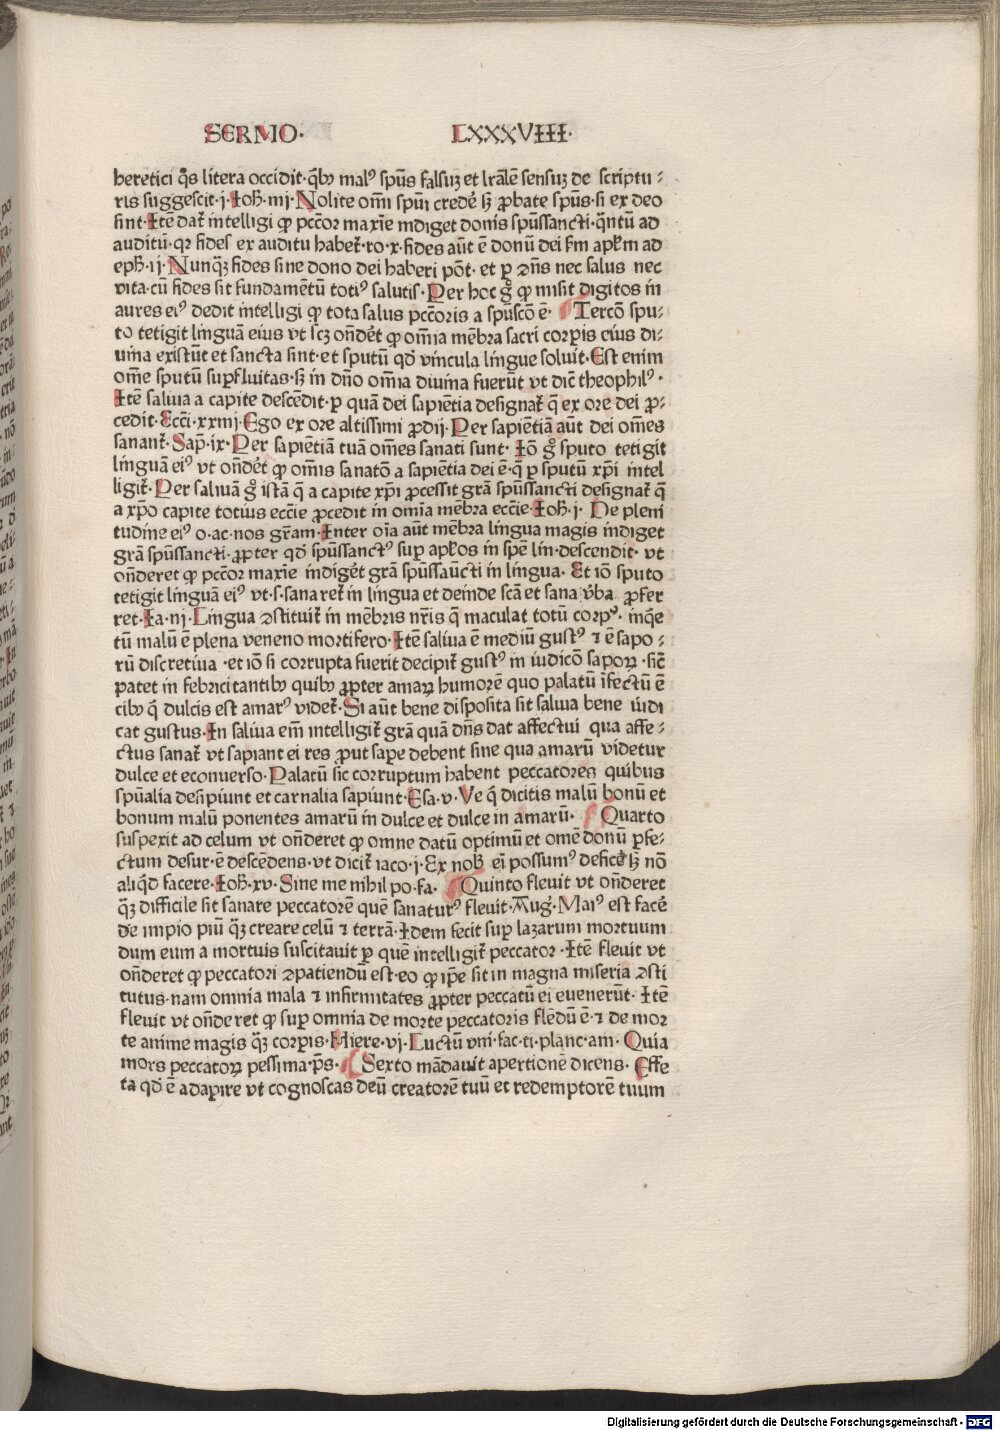 SERMO· LXXXVIII·
heretici q̊s litera occidit·q̈bꝰ malꝰ spūs falsuꝫ et lrālē sensuꝫ de scriptu⸗
ris suggescit·j·Ioħ·iiij·Nolite om̄i spūi credē sꝫ ꝓbate spūs·si ex deo
sint·Itē dat᷑ intelligi ꝙ pcc̄or maxīe indiget donis spūssancti·q̄ntū ad
auditū·qꝛ fides ex auditu habet᷑·ro·x·fides aūt ē donū dei ẜm apl̄m ad
eph·ij·Nunq̄ꝫ fides sine dono dei haberi pōt·et ꝑ ꝯn̄s nec salus nec
vita·cū fides sit fundamētū totiꝰ salutis·Per hoc g̊ ꝙ misit digitos in
aures eiꝰ dedit intelligi ꝙ tota salus pcc̄oris a spūscō ē· Tercō spu⸗
to tetigit linguā eius vt scꝫ on̄dēt ꝙ om̄ia mēbra sacri corpis eius di⸗
uina existūt et sancta sint·et sputū qd̓ vincula lingue soluit·Est enim
om̄e sputū suꝑfluitas·sꝫ in dn̄o om̄ia diuina fuerūt vt dic̄ theophilꝰ·
Itē saliua a capite descēdit·ꝑ quā dei sapiētia designat᷑ q̄ ex ore dei ꝓ⸗
cedit·Ecc̄i·xxiiij·Ego ex ore altissimi ꝓdij·Per sapiētiā aūt dei om̄es
sanant᷑·Sap̄·ix·Per sapiētiā tuā om̄es sanati sunt·Iō g̊ sputo tetigit
linguā eiꝰ vt on̄dēt ꝙ om̄is sanatō a sapiētia dei ē·q̄ ꝑ sputū xp̄i intel
ligit᷑·Per saliuā g̊ istā q̄ a capite xp̄i ꝓcessit grā spūssancti designat᷑ q̄
a xp̄o capite totius ecc̄ie ꝓcedit in om̄ia mēbra ecc̄ie·Ioħ·j· De pleni
tudine eiꝰ o·ac·nos gr̄am·Inter oīa aūt mēbra lingua magis indiget
grā spūssancti·ꝓpter qd̓ spūssanctꝰ suꝑ apl̓os in spē lin·descendit· vt
on̄deret ꝙ pcc̄or maxīe indigēt grā spūssaūcti in lingua· Et iō sputo
tetigit linguā eiꝰ vt·s·sanaret᷑ in lingua et deinde scā et sana v̓ba ꝓfer
ret·Ia·iij·Lingua ꝯstituit᷑ in mēbris nr̄is q̄ maculat totū corpꝰ· inq̄e
tū malū ē plena veneno mortifero·Itē saliua ē mediū gustꝰ ⁊ ē sapo⸗
rū discretiua·et iō si corrupta fuerit decipit᷑ gustꝰ in iudicō sapoꝝ·sic̄
patet in febricitantibꝰ quibꝰ ꝓpter amaꝝ humorē quo palatū īfectū ē
cibꝰ q̄ dulcis est amarꝰ videt᷑·Si aūt bene disposita sit saliua bene iudi
cat gustus·In saliua em̄ intelligit᷑ grā quā dn̄s dat affectui qua affe⸗
ctus sanat᷑ vt sapiant ei res ꝓut sape debent sine qua amarū videtur
dulce et econuerso·Palatū sic corruptum habent peccatores quibus
spūalia desipiunt et carnalia sapiunt·Esa·v·Ve q̄ dicitis malū bonū et
bonum malū ponentes amarū in dulce et dulce in amarū· Quarto
suspexit ad celum vt on̄deret ꝙ omne datū optimū et omē donū ꝑfe⸗
ctum desur·ē descēdens·vt dicit᷑ iaco·j·Ex nob̄ ei possumꝰ deficē sꝫ nō
aliq̄d facere·Ioħ·xv·Sine me nihil po·fa· Quinto fleuit vt on̄deret
q̄ꝫ difficile sit sanare peccatorē quē sanaturꝰ fleuit·Aug·Maiꝰ est facē
de impio piū q̄ꝫ creare celū ⁊ terrā·Idem fecit suꝑ lazarum mortuum
dum eum a mortuis suscitauit ꝑ quē intelligit᷑ peccator·Itē fleuit vt
on̄deret ꝙ peccatori ꝯpatiendū est·eo ꝙ ip̄e sit in magna miseria ꝯsti
tutus·nam omnia mala ⁊ infirmitates ꝓpter peccatū ei euenerūt·Itē
fleuit vt on̄deret ꝙ suꝑ omnia de morte peccatoris flēdū ē·⁊ de mor
te anime magis q̄ꝫ corpis·Hiere·vj·Luctū vni·fac·ti·planc·am· Quia
mors peccatoꝝ pessima·p̄s· Sexto mādauit apertionē dicens· Effe
ta qd̓ ē adapire vt cognoscas deū creatorē tuū et redemptorē tuum
Digitalisierung gefördert durch die Deutsche Forschungsgemeinschaft - DFG